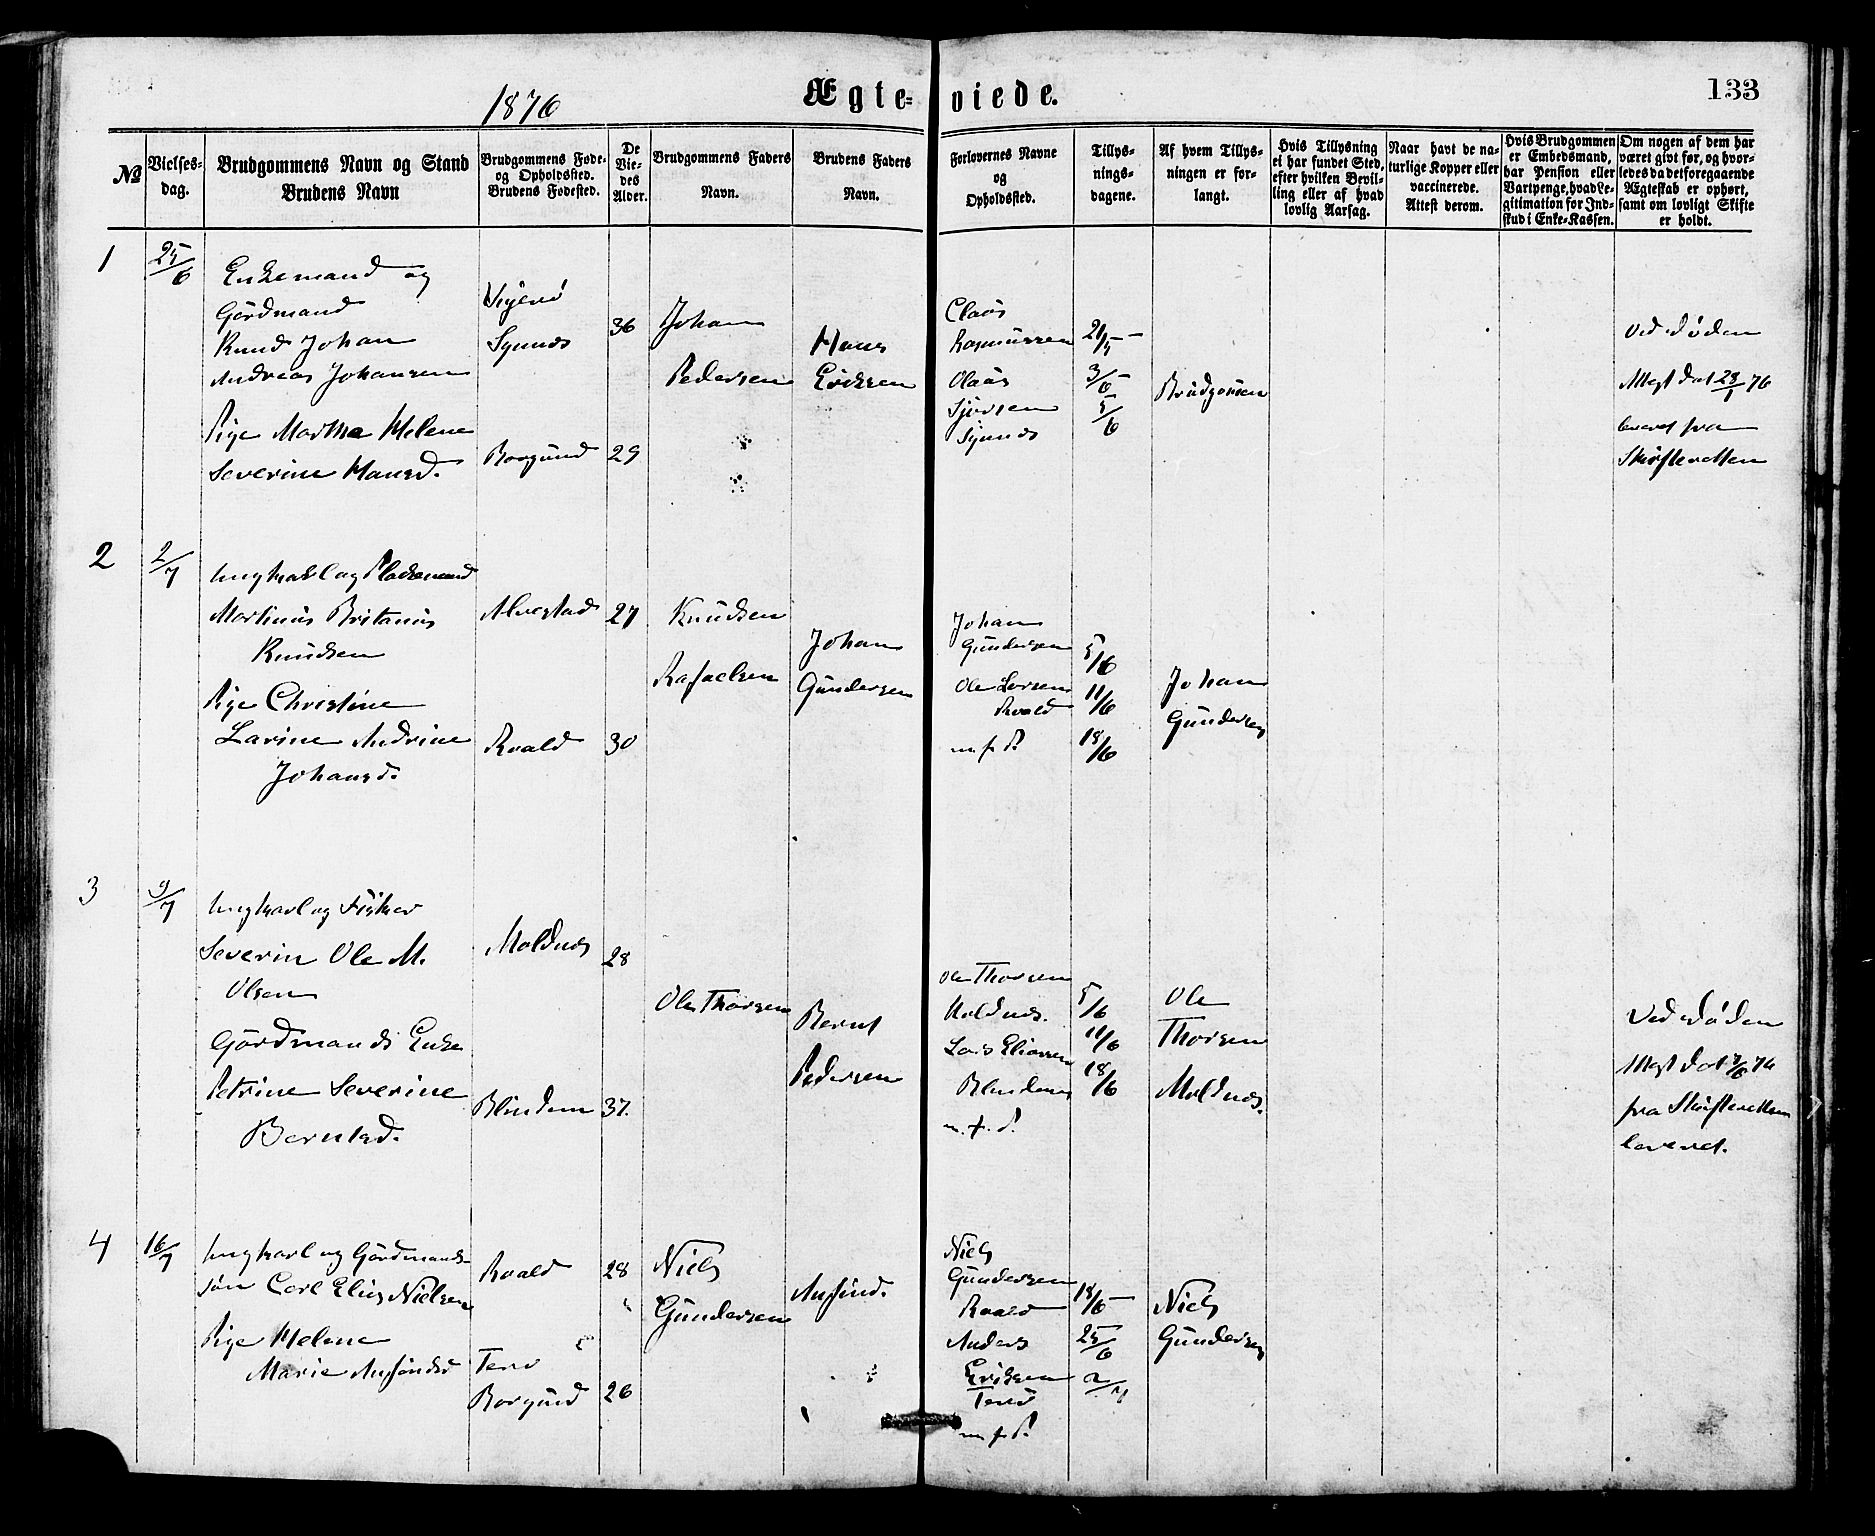 1876
Ægte-viede.
133
№
Vielses-
dag.
Brudgommens Navn og Stand
Brudens Navn
Brudgommens Føde-
og Opholdssted.
Brudens Fødested.
De
Vie-
des
Alder.
Brudgommens Faders
Navn.
Brudens Faders
Navn.
Forlovernes Navne
og
Opholdssted.
Tillys-
nings-
dagene.
Af hvem Tillys-
ningen er for-
langt.
Hvis Tillysning
ei har fundet Sted,
efter hvilken Bevil-
ling eller af hvad
lovlig Aarsag.
Naar havt de na-
turlige Kopper eller
vaccinerede.
Attest derom.
Hvis Brudgommen
er Embedsmand,
har Pension eller
Vartpenge, hvad Le-
gitimation for Ind-
skud i Enke-Kassen.
Om nogen af dem har
været givt før, og hvor-
ledes da det foregaaende
Ægteskab er ophørt,
samt om lovligt Skifte
er holdt.
1
25/6
Enkemand og
Gårdmand
Knud Johan
Andreas Johansen
Pige Martha Helene
Severine Hansd.
Synnes
Borgund
36
29
Johan
Pedersen
Hans
Eriksen
Claus
Rasmussen
Olaus
Synnes
21/5
3/6
5/6
Brudgomen
Ved Døden
Attest dat 28/1 76
leveret fra
Skifteretten
2
2/7
Ungkarl og Pladsemand
Martinus Britanus
Knudsen
Pige Christine
Larine Andrine
Johansd.
Alvestad
Roald
27
30
Knudsen
Rafaelsen
Johan
Gundersen
Johan
Gundersen
Ole Larsen
Roald
m. f. P.
5/6
11/6
18/6
Johan
Gundersen
3
9/7
Ungkarl og Fisker
Severin Ole M.
Olsen
Gårdmands Enke
Petrine Severine
Berntsd.
Moldnes
Blindem
28
37.
Ole Thorsen
Bernt
Pedersen
Ole Thorsen
Moldnes.
Lars Eliassen
Blindem
m. f. P.
5/6
11/6
18/6
Ole
Thorsen
Moldnes.
Ved Døden
Attest dat 2/6 76
fra Skifteretten
leveret.
4
16/7
Ungkarl og Gårdmands-
søn Carl Elias Nielsen
Pige Helene
Marie Ansfindsd
Roald
Terø
Borgund
28
26
Niels
Gundersen
Ansfind.
Niels
Gundersen
Roald
Anders
Eriksen
Terø
m. f. P.
18/6
25/6
2/7
Niels
Gundersen